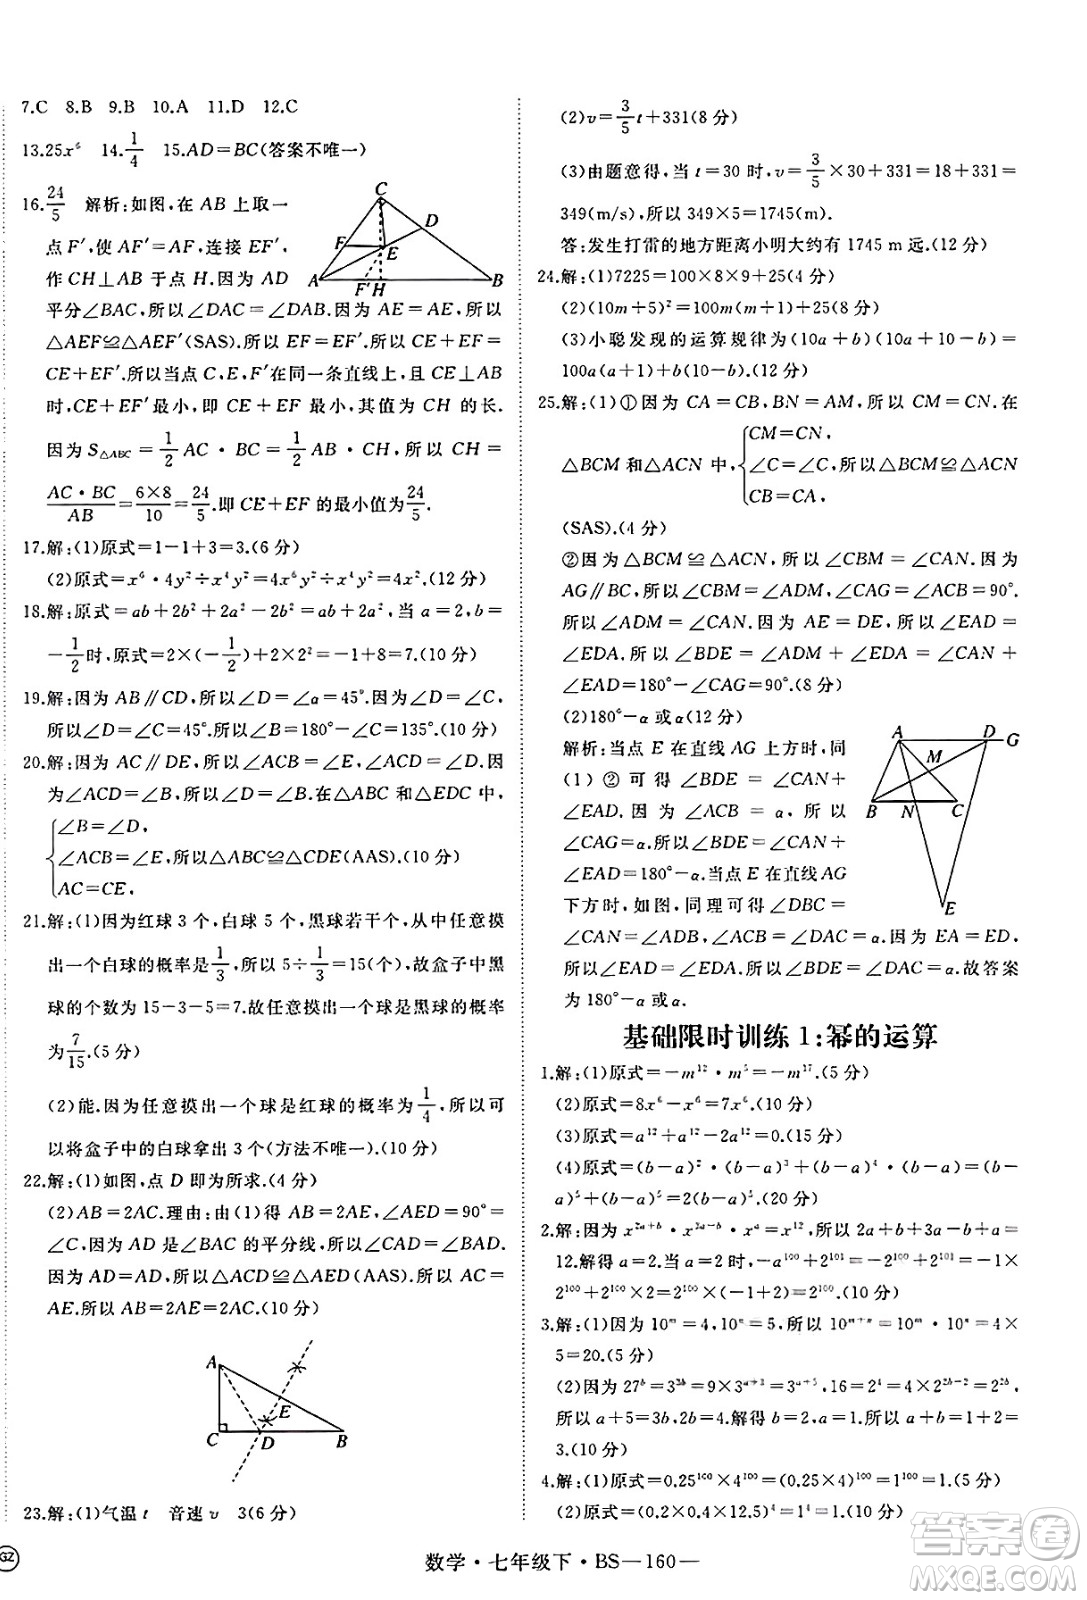 7.C 8.B 9.B 10.A 11.D 12.C
13.25x⁶ 14.1/4 15.AD=BC(答案不唯一)
16.24/5 解析:如图,在 AB 上取一
点 F′,使 AF′=AF,连接 EF′,
作 CH⊥AB 于点 H.因为 AD
平分∠BAC,所以∠DAC=∠DAB.因为 AE=AE,所以
△AEF≌△AEF′(SAS).所以 EF=EF′.所以 CE+EF=
CE+EF′.所以当点 C,E,F′在同一条直线上,且 CE⊥AB
时,CE+EF′最小,即 CE+EF 最小,其值为 CH 的长.
因为 S△ABC=1/2 AC·BC=1/2 AB·CH,所以 CH=
AC·BC/AB=6×8/10=24/5.即 CE+EF 的最小值为24/5.
17.解:(1)原式=1-1+3=3.(6 分)
(2)原式=x⁶·4y²÷x⁴y²=4x⁶y²÷x⁴y²=4x².(12 分)
18.解:原式=ab+2b²+2a²-2b²=ab+2a²,当 a=2,b=
-1/2时,原式=2×(-1/2)+2×2²=-1+8=7.(10 分)
19.解:因为 AB∥CD,所以∠D=∠α=45°.因为∠D=∠C,
所以∠D=∠C=45°.所以∠B=180°-∠C=135°.(10 分)
20.解:因为 AC∥DE,所以∠ACB=∠E,∠ACD=∠D.因
为∠ACD=∠B,所以∠D=∠B.在△ABC 和△EDC 中,
∠B=∠D,
∠ACB=∠E,所以△ABC≌△CDE(AAS).(10 分)
AC=CE,
21.解:(1)因为红球 3 个,白球 5 个,黑球若干个,从中任意摸
出一个白球的概率是1/3,所以 5÷1/3=15(个).故盒子中黑
球的个数为 15-3-5=7.故任意摸出一个球是黑球的概率
为7/15.(5 分)
(2)能.因为任意摸出一个球是红球的概率为1/4,所以可
以将盒子中的白球拿出 3 个(方法不唯一).(10 分)
22.解:(1)如图,点 D 即为所求.(4 分)
(2)AB=2AC.理由:由(1)得 AB=2AE,∠AED=90°=
∠C.因为 AD 是∠BAC 的平分线,所以∠CAD=∠BAD.
因为 AD=AD,所以△ACD≌△AED(AAS).所以 AC=
AE.所以 AB=2AE=2AC.(10 分)
23.解:(1)气温 t 音速 v 3(6 分)
(2)v=3/5 t+331(8 分)
(3)由题意得,当 t=30 时,v=3/5×30+331=18+331=
349(m/s),所以 349×5=1745(m).
答:发生打雷的地方距离小明大约有 1745 m 远.(12 分)
24.解:(1)7225=100×8×9+25(4 分)
(2)(10m+5)²=100m(m+1)+25(8 分)
(3)小聪发现的运算规律为(10a+b)(10a+10-b)=
100a(a+1)+b(10-b).(12 分)
25.解:(1)①因为 CA=CB,BN=AM,所以 CM=CN.在
△BCM 和△ACN 中,
CM=CN,
∠C=∠C,所以△BCM≌△ACN
CB=CA,
(SAS).(4 分)
②因为△BCM≌△ACN,所以∠CBM=∠CAN.因为
AG∥BC,所以∠CBM=∠ADM,∠CAG=∠ACB=90°.
所以∠ADM=∠CAN.因为 AE=DE,所以∠EAD=
∠EDA.所以∠BDE=∠ADM+∠EDA=∠CAN+
∠EAD=180°-∠CAG=90°.(8 分)
(2)180°-α或α(12 分)
解析:当点 E 在直线 AG 上方时,同
(1)②可得∠BDE=∠CAN+
∠EAD.因为∠ACB=α,所以
∠CAG=α.所以∠BDE=∠CAN+
∠EAD=180°-α.当点 E 在直线 AG
下方时,如图,同理可得∠DBC=
∠CAN=∠ADB,∠DAC=α.因为EA=ED,所以
∠EAD=∠EDA.所以∠BDE=∠DAC=α.故答案
为 180°-α或α.
基础限时训练 1:幂的运算
1.解:(1)原式=-m¹²·m⁵=-m¹⁷.(5 分)
(2)原式=8x⁶-x⁶=7x⁶.(10 分)
(3)原式=a¹²+a¹²-2a¹²=0.(15 分)
(4)原式=(b-a)²·(b-a)³+(b-a)⁴·(b-a)=(b-
a)⁵+(b-a)⁵=2(b-a)⁵.(20 分)
2.解:因为 x²ᵃ⁺ᵇ·x³ᵃ⁻ᵇ·xᵃ=x¹²,所以 2a+b+3a-b+a=
12.解得 a=2.当 a=2 时,-a¹⁰⁰+2¹⁰¹=-2¹⁰⁰+2¹⁰¹=-1×
2¹⁰⁰+2¹⁰⁰×2=2¹⁰⁰×(-1+2)=2¹⁰⁰.(10 分)
3.解:(1)因为 10ᵐ=4,10ⁿ=5,所以 10ᵐ⁺ⁿ=10ᵐ·10ⁿ=4×
5=20.(5 分)
(2)因为 27ᵇ=3³ᵇ=9×3ᵃ⁺³=3ᵃ⁺⁵,16=2⁴=4×2²ᵇ⁻²=2²ᵇ,
所以 a+5=3b,2b=4.解得 a=1,b=2.所以 a+b=1+2=
3.(10 分)
4.解:(1)原式=0.25¹⁰⁰×4¹⁰⁰=(0.25×4)¹⁰⁰=1.(5 分)
(2)原式=(0.2×0.4×12.5)
数学·七年级下·BS—160—
GZ
A
B
C
D
E
F
F′H
A
B
C
D
E
A
D
G
M
B
N
C
E
答案圈
MXQE.COM